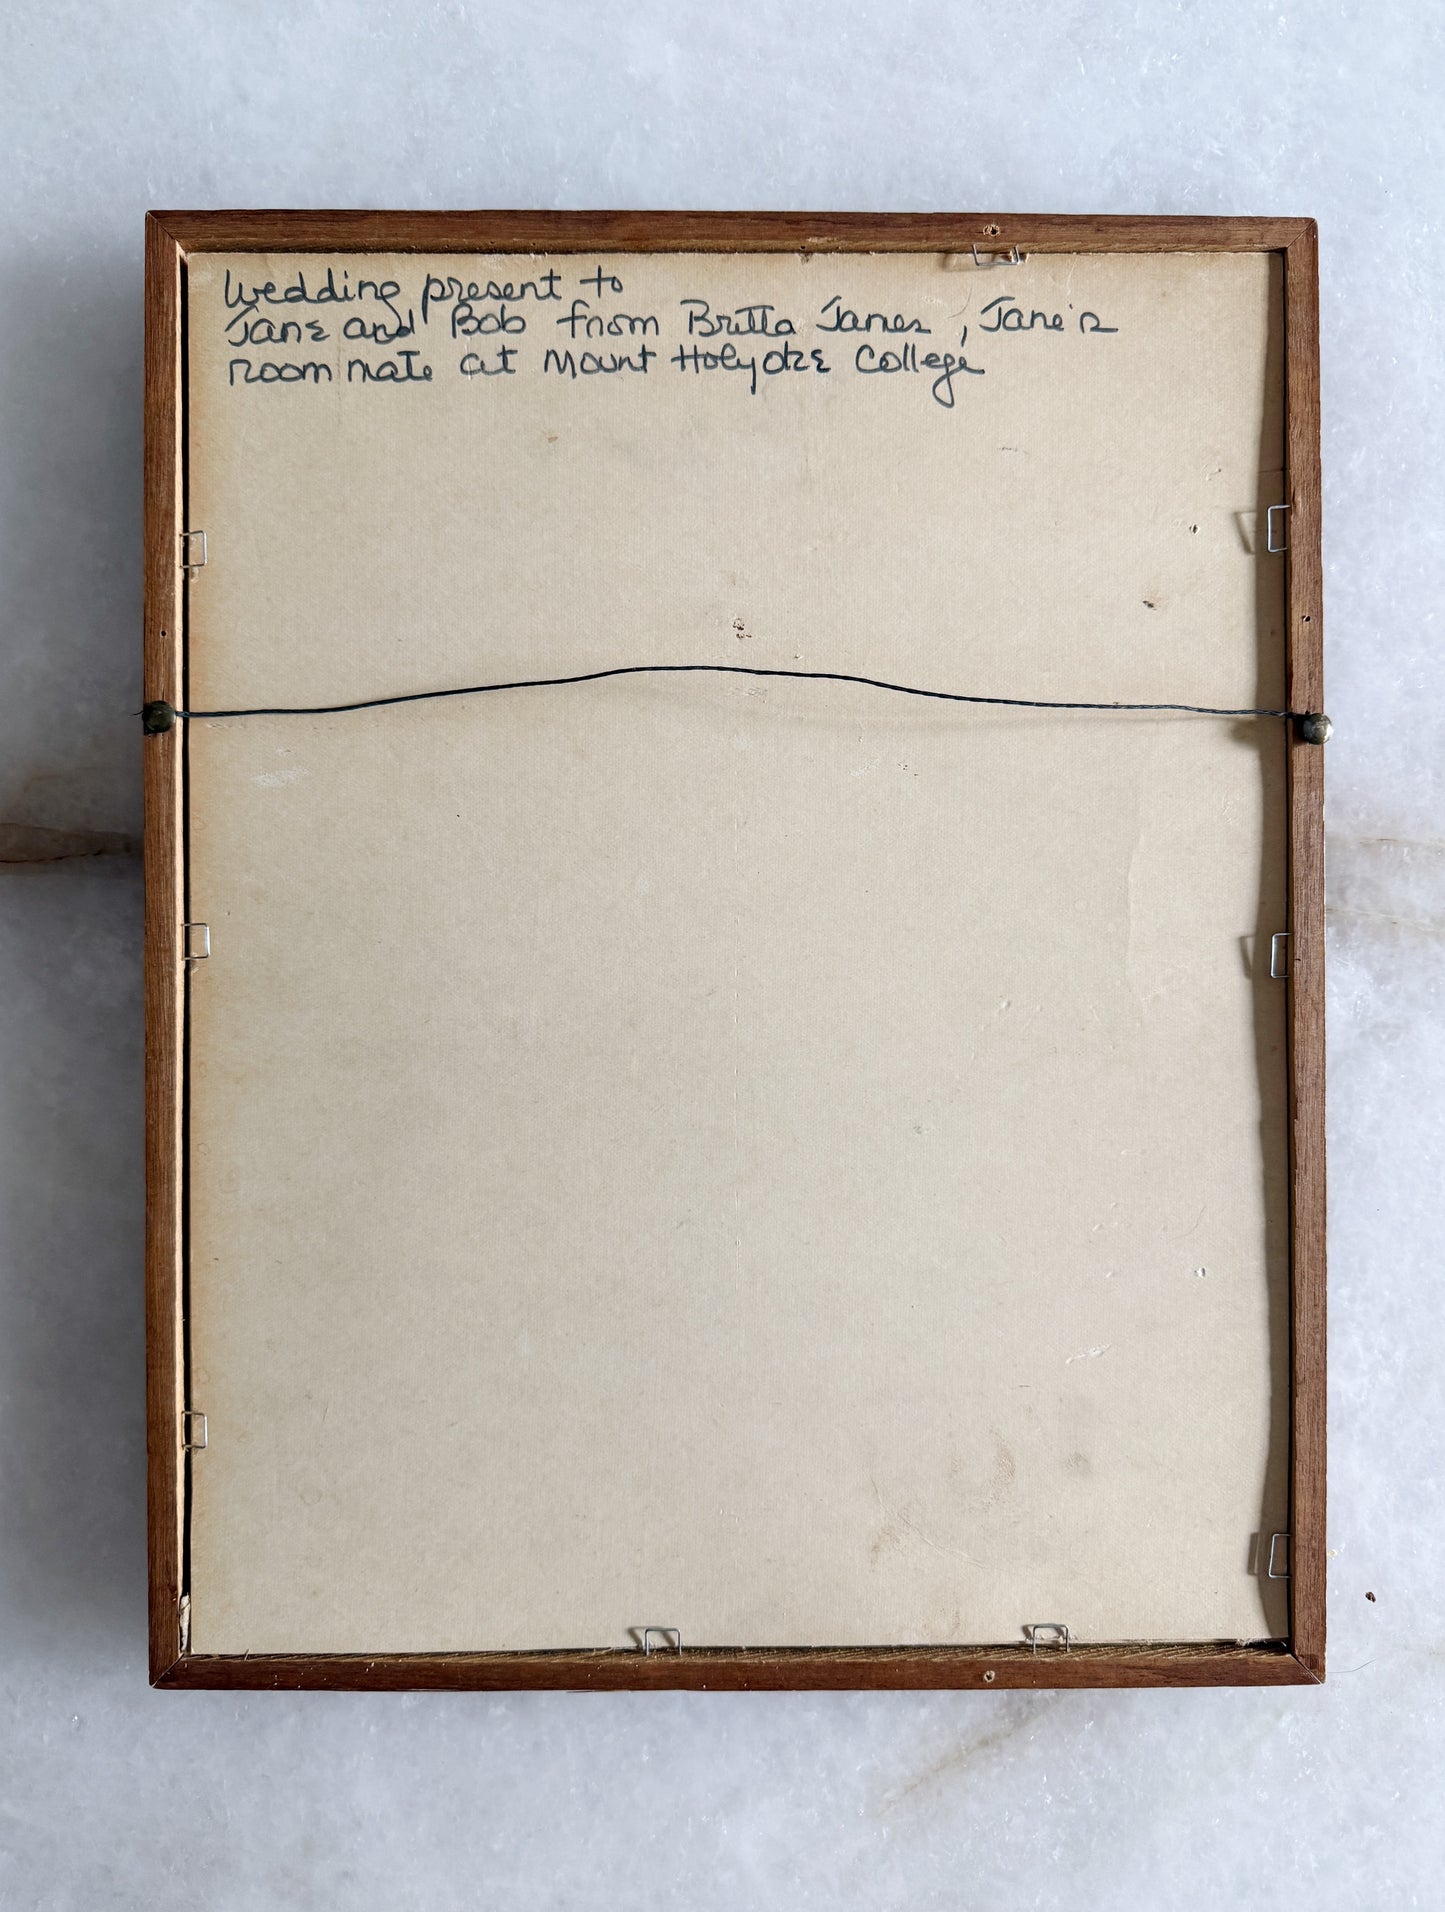 Wedding present to
Jane and Bob from Britta James, Jane's
roommate at Mount Holyoke College